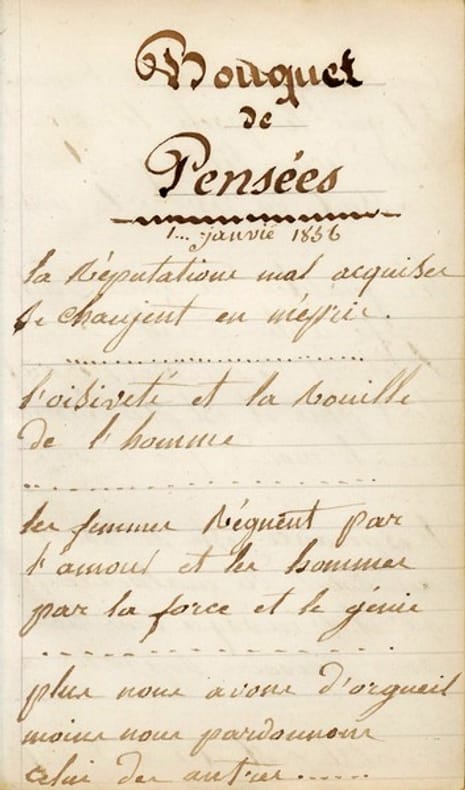 Bouquet
de
Pensées
1... janvié 1856
la Réputations mal acquises
se changent en mépris.
l'oisiveté et la Rouille
de l'homme
les femmes Règnent par
l'amour et les hommes
par la force et le génie
plus nous avons d'orgueil
moins nous pardonnons
celui des autres......